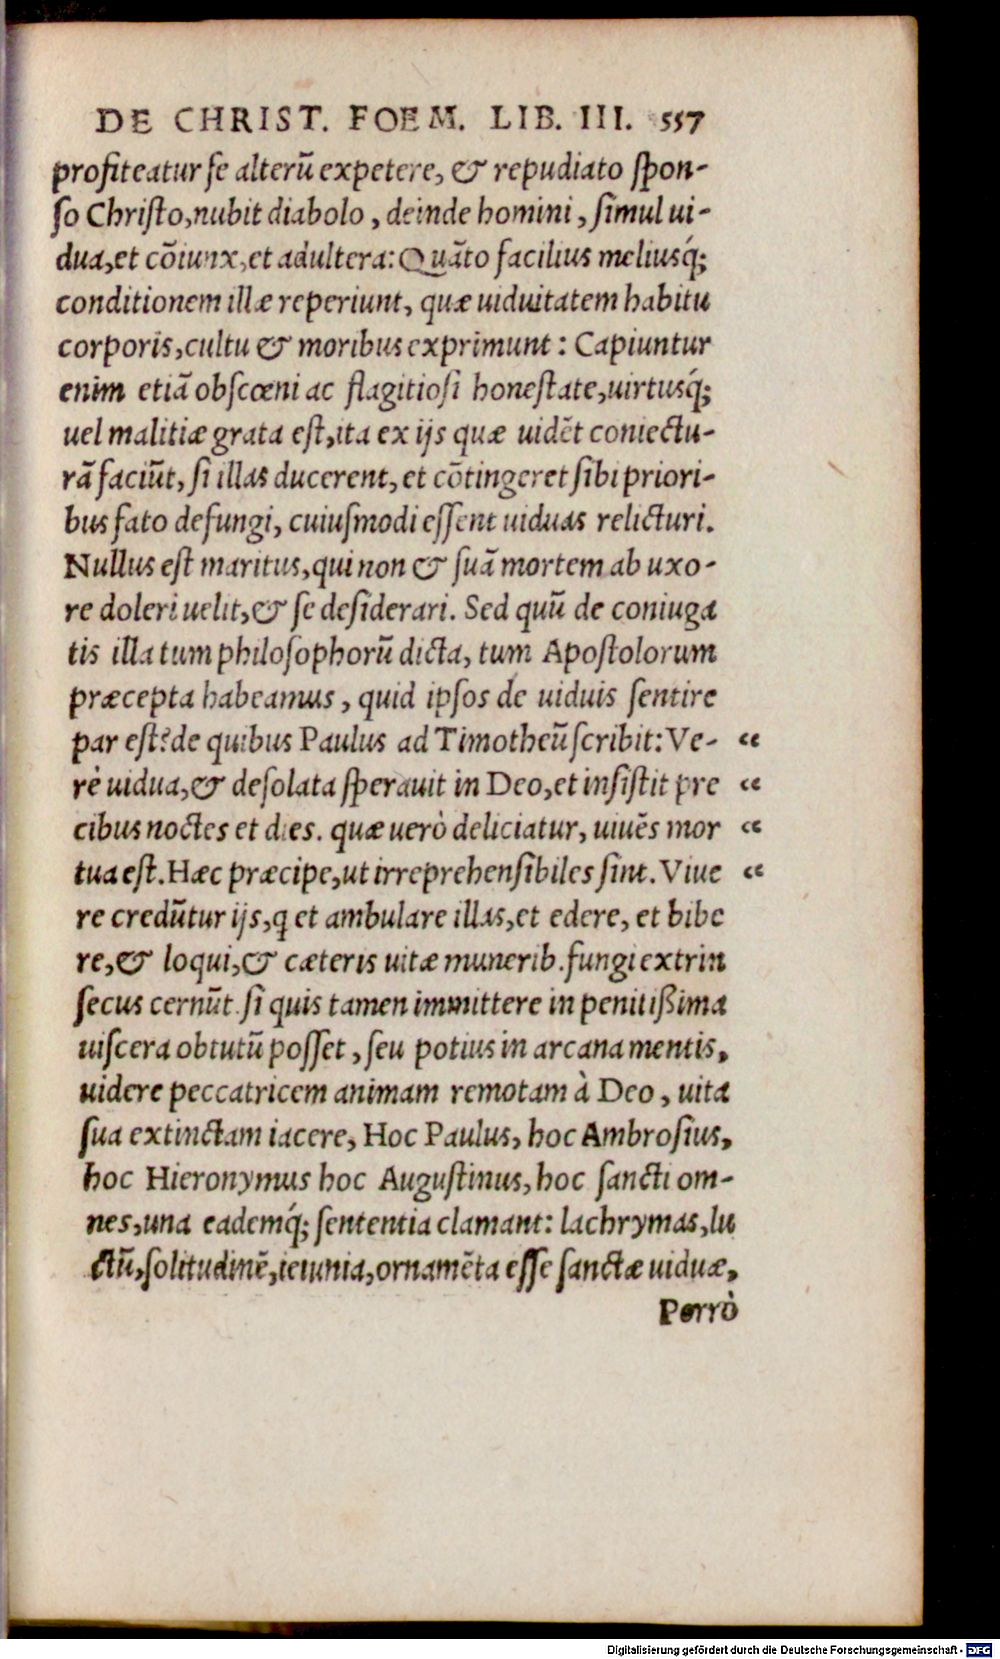 DE CHRIST. FOEM. LIB. III. 557
profiteatur se alterũ expetere, & repudiato spon-
so Christo, nubit diabolo, deinde homini, simul ui-
dua, et cõiunx, et adultera: Quãto facilius meliusq́;
conditionem illæ reperiunt, quæ uiduitatem habitu
corporis, cultu & moribus exprimunt: Capiuntur
enim etiã obscœni ac flagitiosi honestate, uirtusq́;
uel malitiæ grata est, ita ex ijs quæ uidẽt coniectu-
rã faciũt, si illas ducerent, et cõtingeret sibi priori-
bus fato defungi, cuiusmodi essent uiduas relicturi.
Nullus est maritus, qui non & suã mortem ab uxo-
re doleri uelit, & se desiderari. Sed quũ de coniuga
tis illa tum philosophorũ dicta, tum Apostolorum
præcepta habeamus, quid ipsos de uiduis sentire
par est? de quibus Paulus ad Timotheũ scribit: Ve- “
rè uidua, & desolata sperauit in Deo, et insistit pre “
cibus noctes et dies. quæ uerò deliciatur, uiuẽs mor “
tua est. Hæc præcipe, ut irreprehensibiles sint. Viue “
re credũtur ijs, q et ambulare illas, et edere, et bibe
re, & loqui, & cæteris uitæ munerib. fungi extrin
secus cernũt. si quis tamen immittere in penitißima
uiscera obtutũ posset, seu potius in arcana mentis,
uidere peccatricem animam remotam à Deo, uita
sua extinctam iacere, Hoc Paulus, hoc Ambrosius,
hoc Hieronymus hoc Augustinus, hoc sancti om-
nes, una eademq́; sententia clamant: lachrymas, lu
ctũ, solitudinẽ, ieiunia, ornamẽta esse sanctæ uiduæ,
Porrò
Digitalisierung gefördert durch die Deutsche Forschungsgemeinschaft - DFG